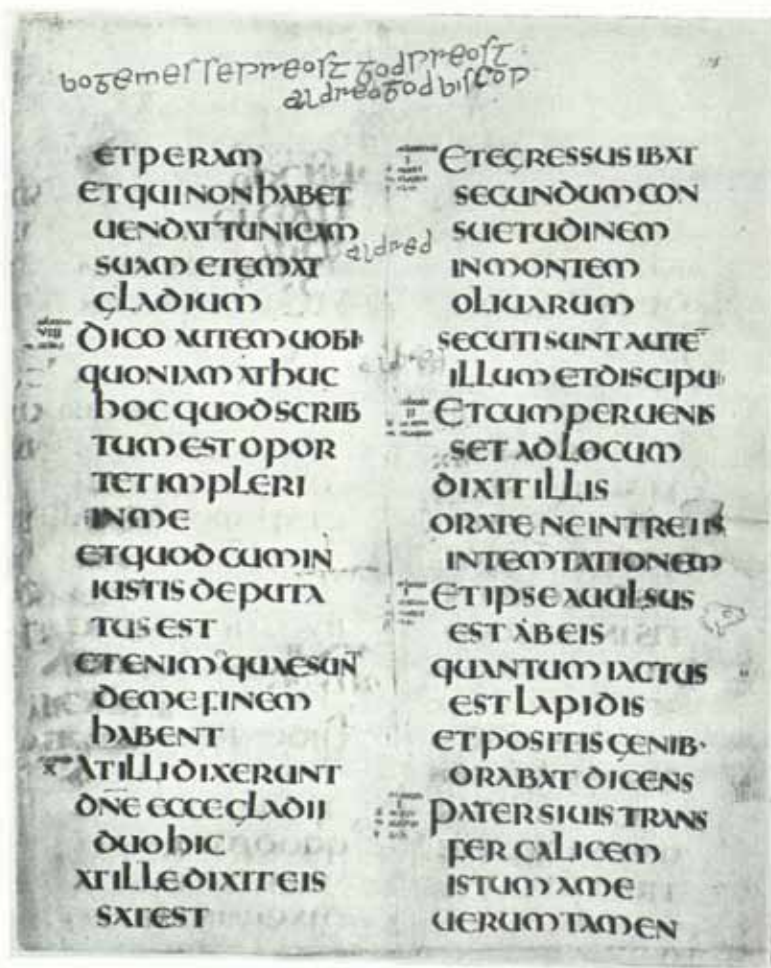 boge messepreost god preost
aldred god biscop
ET PERAM
ET QUI NON hABET
UENDAT TUNICAM
SUAM ET EMAT
GLADIUM
DICO AUTEM UOBIS
QUONIAM AThUC
hOC QUOD SCRIB
TUM EST OPOR
TET IMPLERI
IN ME
ET QUOD CUM IN
IUSTIS DEPUTA
TUS EST
ETENIM QUAE SUNT
DE ME FINEM
hABENT
AT ILLI DIXERUNT
DNE ECCE GLADII
DUO hIC
AT ILLE DIXIT EIS
SAT EST
aldred
ET EGRESSUS IBAT
SECUNDUM CON
SUETUDINEM
IN MONTEM
OLIUARUM
SECUTI SUNT AUTE
ILLUM ET DISCIPULI
ET CUM PERUENIS
SET AD LOCUM
DIXIT ILLIS
ORATE NE INTRETIS
IN TEMTATIONEM
ET IPSE AUULSUS
EST AB EIS
QUANTUM IACTUS
EST LAPIDIS
ET POSITIS GENIB·
ORABAT DICENS
PATER SI UIS TRANS
FER CALICEM
ISTUM A ME
UERUM TAMEN